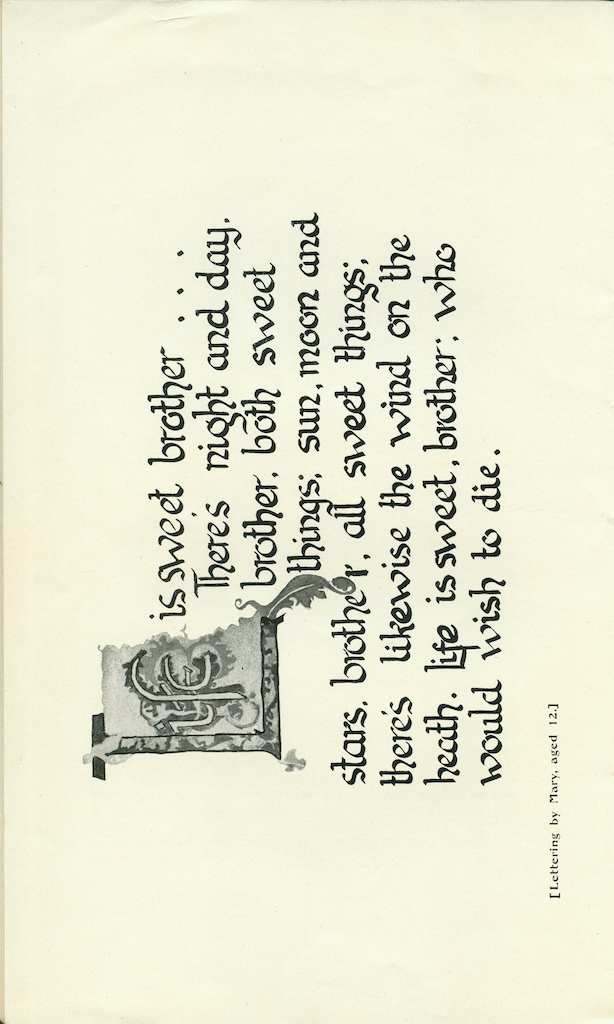 Life is sweet brother . . .
There's night and day,
brother, both sweet
things; sun, moon and
stars, brother, all sweet things;
there's likewise the wind on the
heath. Life is sweet, brother; who
would wish to die.
[Lettering by Mary, aged 12.]